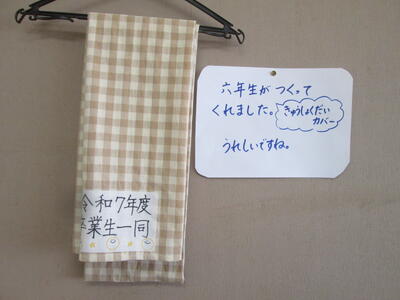 六年生が つくって
くれました。
きゅうしょくだい
カバー
うれしいですね。
令和7年度
卒業生一同